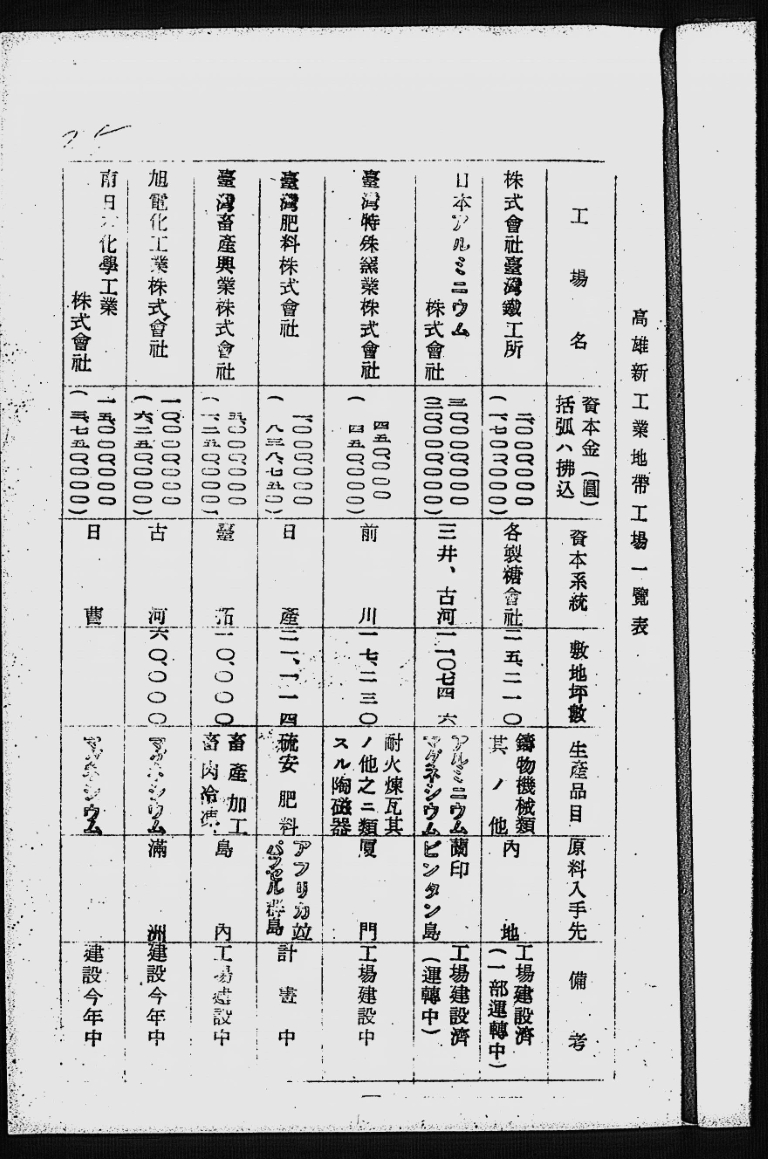 高雄新工業地帶工場一覽表
工場名
資本金(圓)
括弧ハ拂込
資本系統
敷地坪數
生產品目
原料入手先
備考
株式會社臺灣鐵工所
二、〇〇〇、〇〇〇
(一、七〇〇、〇〇〇)
各製糖會社
二五、二一〇
鑄物機械類
其ノ他
內地
工場建設濟
(一部運轉中)
日本アルミニウム
株式會社
三井、古河
一一、〇七四六
アルミニウム
マグネシウム
蘭印
ビンタン島
工場建設濟
(運轉中)
臺灣特殊窯業株式會社
四五〇、〇〇〇
(四五〇、〇〇〇)
前川
一七、二三〇
耐火煉瓦其
ノ他之ニ類
スル陶磁器
厦門
工場建設中
臺灣肥料株式會社
一、〇〇〇、〇〇〇
(八三八、七五〇)
日產
二一、一一四
硫安肥料
アフリカ竝
パラセル群島
計畫中
臺灣畜產興業株式會社
五、〇〇〇、〇〇〇
(一、二五〇、〇〇〇)
臺拓
一〇、〇〇〇
畜產加工
畜肉冷凍
島內
工場建設中
旭電化工業株式會社
一〇、〇〇〇、〇〇〇
(六、二五〇、〇〇〇)
古河
六〇、〇〇〇
マグネシウム
滿洲
建設今年中
南日本化學工業
株式會社
一五、〇〇〇、〇〇〇
(三、七五〇、〇〇〇)
日曹
マグネシウム
建設今年中
一